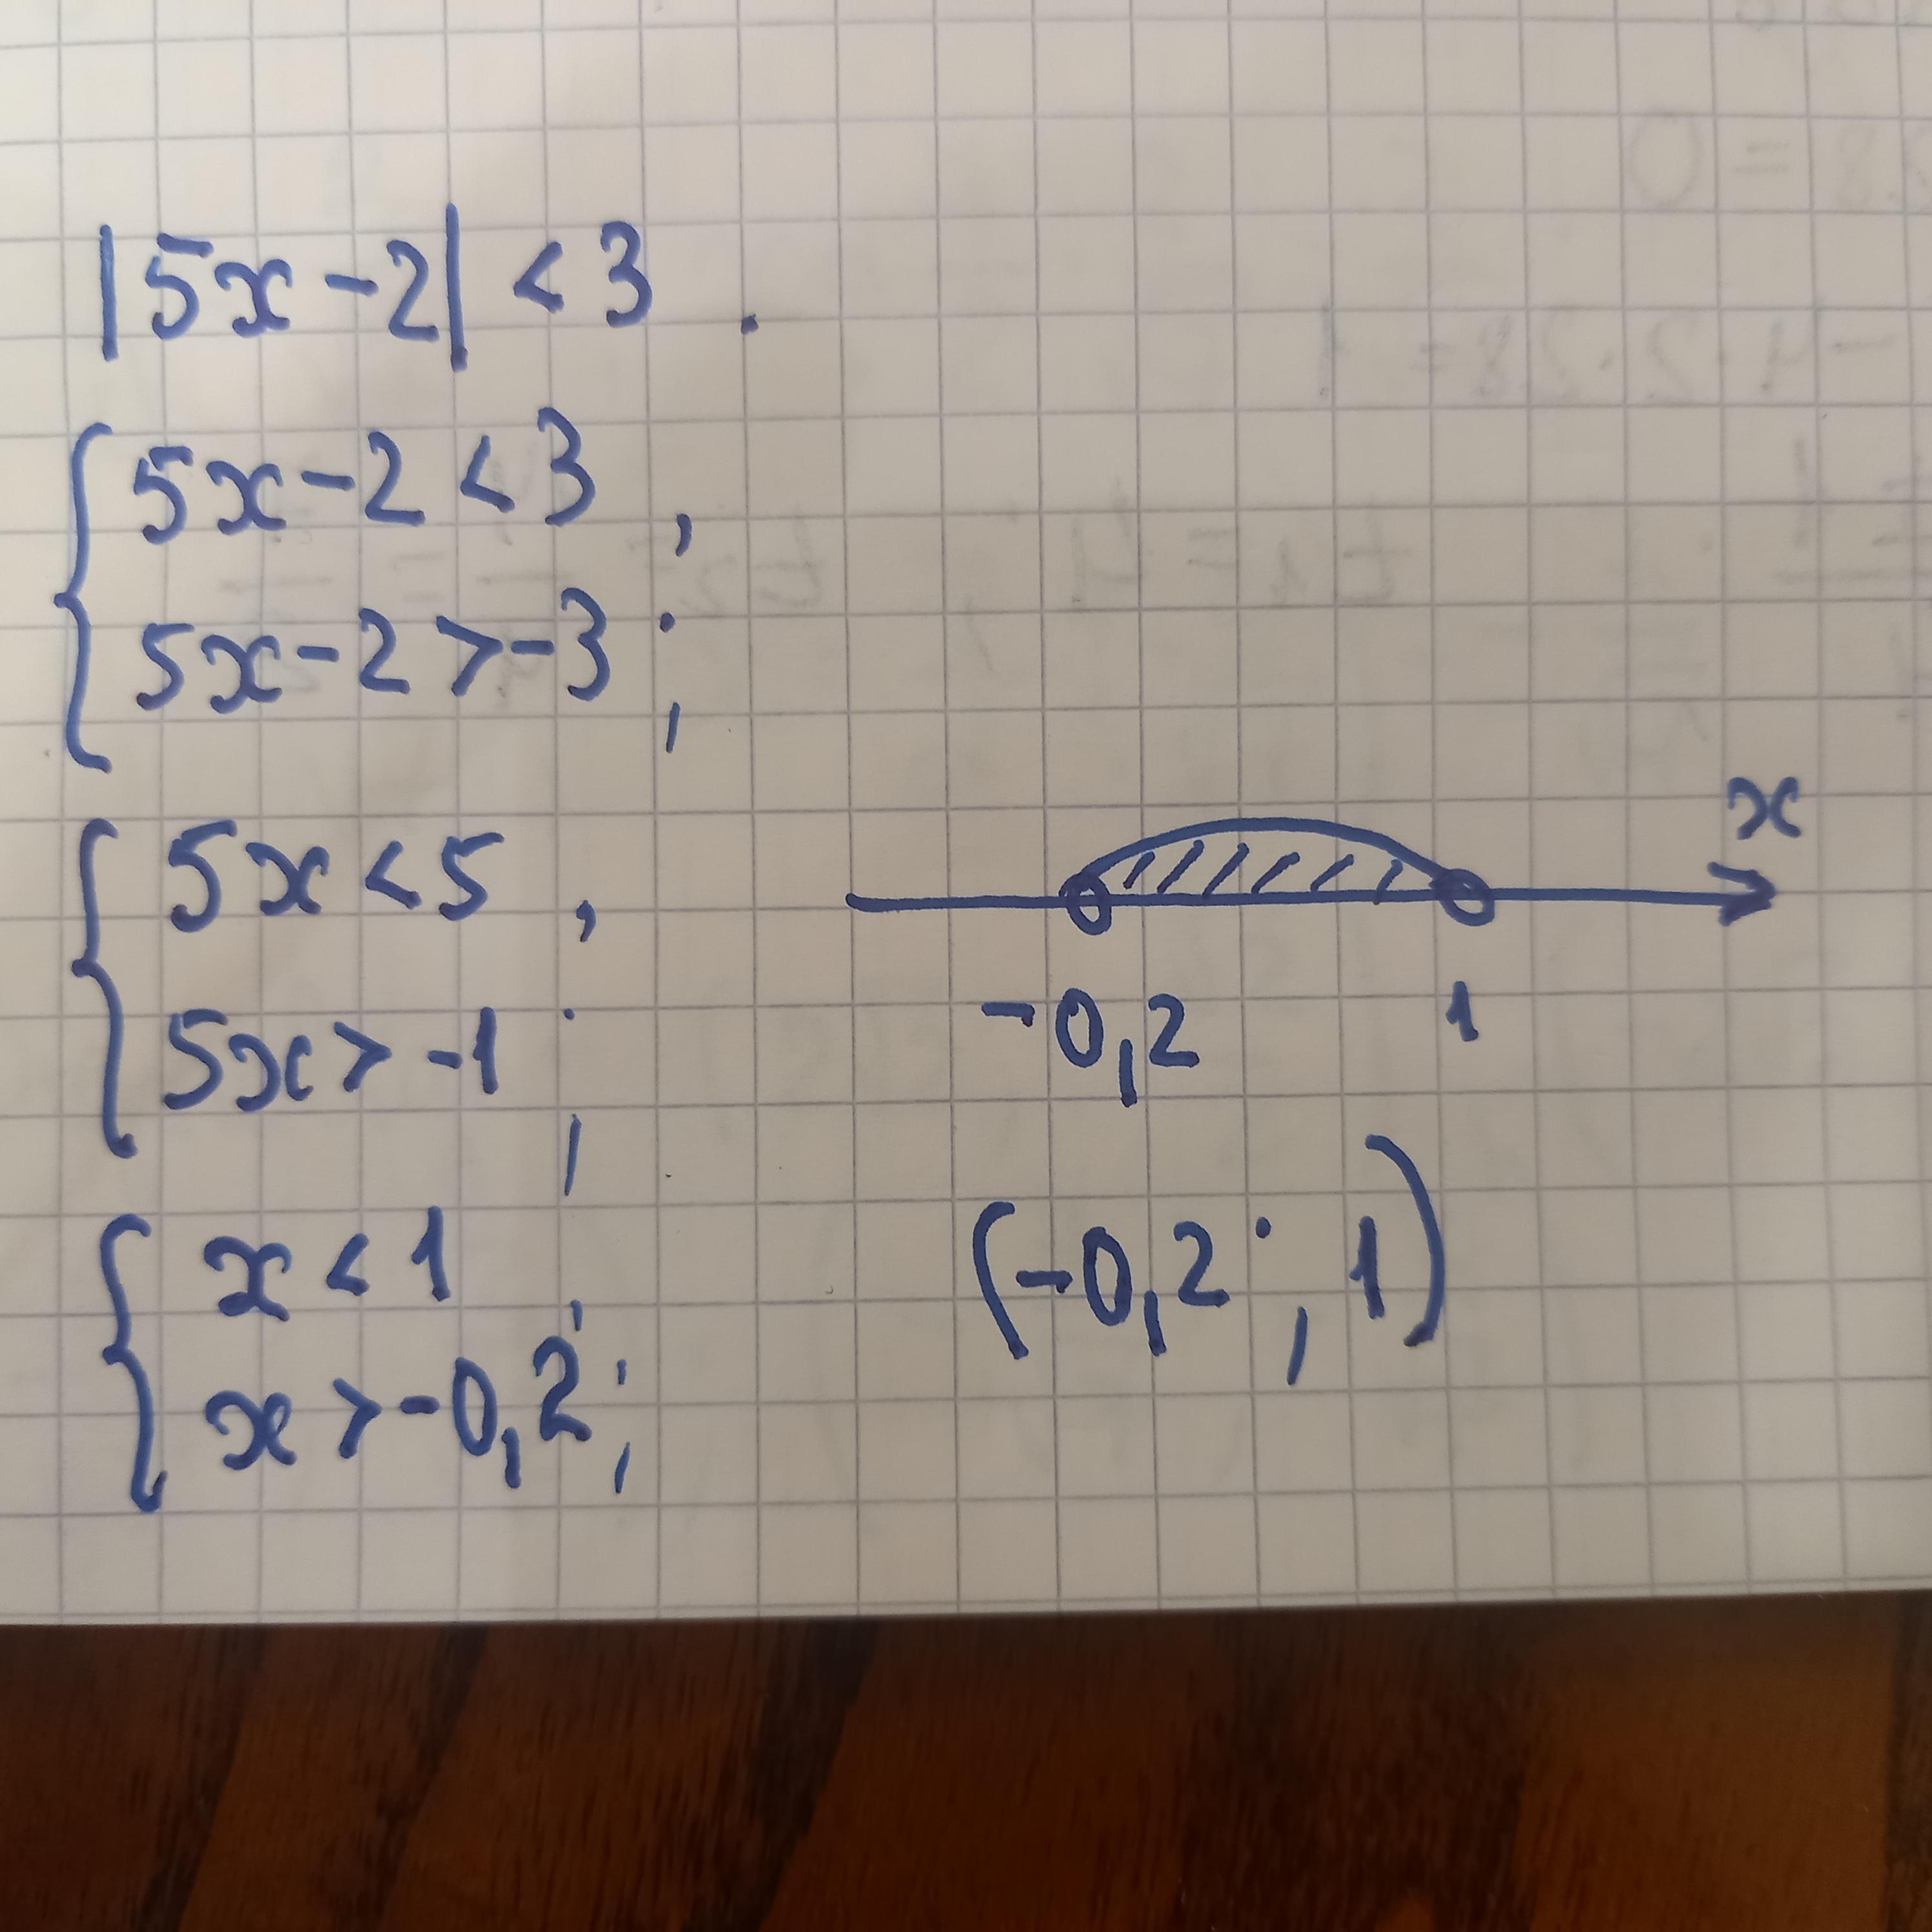 |5x-2| < 3 .
5x-2 < 3 ,
5x-2 > -3 ;
5x < 5 ,
5x > -1 ;
x < 1 ,
x > -0,2 ;
x
-0,2 1
(-0,2 ; 1)